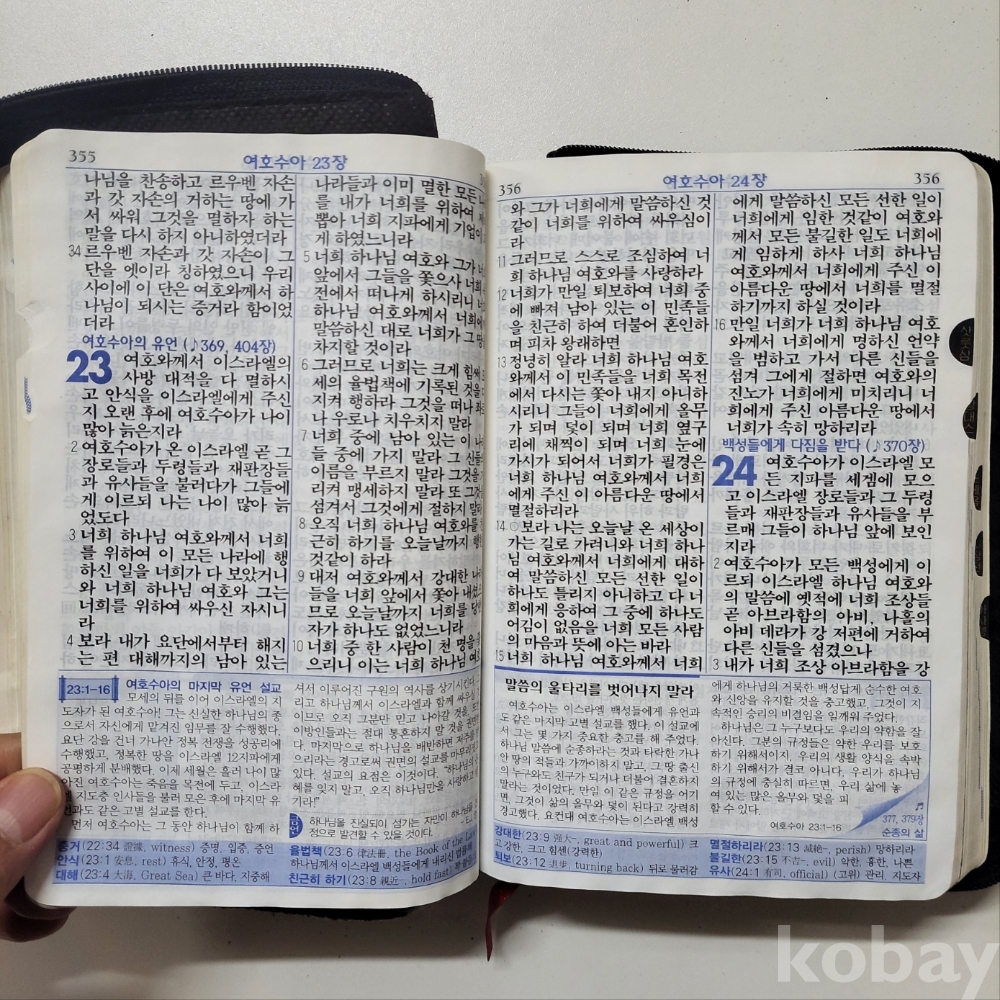 355
여호수아 23장
나님을 찬송하고 르우벤 자손
과 갓 자손의 거하는 땅에 가
서 싸워 그것을 멸하자 하는
말을 다시 하지 아니하였더라
34 르우벤 자손과 갓 자손이 그
단을 엣이라 칭하였으니 우리
사이에 이 단은 여호와께서 하
나님이 되시는 증거라 함이었
더라
여호수아의 유언 (♪369, 404장)
23 여호와께서 이스라엘의
사방 대적을 다 멸하시
고 안식을 이스라엘에게 주신
지 오랜 후에 여호수아가 나이
많아 늙은지라
2 여호수아가 온 이스라엘 곧 그
장로들과 두령들과 재판장들
과 유사들을 불러다가 그들에
게 이르되 나는 나이 많아 늙
었도다
3 너희 하나님 여호와께서 너희
를 위하여 이 모든 나라에 행
하신 일을 너희가 다 보았거니
와 너희 하나님 여호와 그는
너희를 위하여 싸우신 자시니
라
4 보라 내가 요단에서부터 해지
는 편 대해까지의 남아 있는
나라들과 이미 멸한 모든
를 내가 너희를 위하여
뽑아 너희 지파에게 기업이
게 하였느니라
5 너희 하나님 여호와 그가
앞에서 그들을 쫓으사 너희
전에서 떠나게 하시리니
하나님 여호와께서 너희에
말씀하신 대로 너희가 그
차지할 것이라
6 그러므로 너희는 크게 힘써
세의 율법책에 기록된 것을
지켜 행하라 그것을 떠나
나 우로나 치우치지 말라
7 너희 중에 남아 있는 이
들 중에 가지 말라 그 신들
이름을 부르지 말라 그것을
리켜 맹세하지 말라 또 그것
섬겨서 그것에게 절하지 말라
8 오직 너희 하나님 여호와를
근히 하기를 오늘날까지 행
것같이 하라
9 대저 여호와께서 강대한 나라
들을 너희 앞에서 쫓아 내셨으
므로 오늘날까지 너희를 당한
자가 하나도 없었느니라
10 너희 중 한 사람이 천 명을
으리니 이는 너희 하나님
23:1-16 여호수아의 마지막 유언 설교
모세의 뒤를 이어 이스라엘의 지
도자가 된 여호수아! 그는 신실한 하나님의 종
으로서 자신에게 맡겨진 임무를 잘 수행했다.
요단 강을 건너 가나안 정복 전쟁을 성공리에
수행했고, 정복한 땅을 이스라엘 12지파에게
공평하게 분배했다. 이제 세월은 흘러 나이 많
아진 여호수아는 죽음을 목전에 두고, 이스라
엘 지도층 인사들을 불러 모은 후에 마지막 유
언과도 같은 고별 설교를 한다.
먼저 여호수아는 그 동안 하나님이 함께 하
셔서 이루어진 구원의 역사를 상기시킨다.
리고 하나님께서 이스라엘과 함께 싸우실
이므로 오직 그분만 믿고 나아갈 것을
이방인들과는 절대 통혼하지 말 것을 권면한
다. 마지막으로 하나님을 배반하면 저주를
으리라는 경고로써 권면의 설교를 마무리
있다. 설교의 요점은 이것이다. "하나님의
혜를 잊지 말고, 오직 하나님만을 사랑하고
기라!"
금언 하나님을 진실되이 섬기는 자만이 하나님을
정으로 발견할 수 있을 것이다.
증거 (22:34 證據, witness) 증명, 입증, 증언
안식 (23:1 安息, rest) 휴식, 안정, 평온
대해 (23:4 大海, Great Sea) 큰 바다, 지중해
율법책 (23:6 律法冊, the Book of the Law)
하나님께서 이스라엘 백성들에게 내리신 법률에
친근히 하기 (23:8 親近─, hold fast)
356
여호수아 24장
356
와 그가 너희에게 말씀하신 것
같이 너희를 위하여 싸우심이
라
11 그러므로 스스로 조심하여 너
희 하나님 여호와를 사랑하라
12 너희가 만일 퇴보하여 너희 중
에 빠져 남아 있는 이 민족들
을 친근히 하여 더불어 혼인하
며 피차 왕래하면
13 정녕히 알라 너희 하나님 여호
와께서 이 민족들을 너희 목전
에서 다시는 쫓아 내지 아니하
시리니 그들이 너희에게 올무
가 되며 덫이 되며 너희 옆구
리에 채찍이 되며 너희 눈에
가시가 되어서 너희가 필경은
너희 하나님 여호와께서 너희
에게 주신 이 아름다운 땅에서
멸절하리라
14 ○보라 나는 오늘날 온 세상이
가는 길로 가려니와 너희 하나
님 여호와께서 너희에게 대하
여 말씀하신 모든 선한 일이
하나도 틀리지 아니하고 다 너
희에게 응하여 그 중에 하나도
어김이 없음을 너희 모든 사람
의 마음과 뜻에 아는 바라
15 너희 하나님 여호와께서 너희
에게 말씀하신 모든 선한 일이
너희에게 임한 것같이 여호와
께서 모든 불길한 일도 너희에
게 임하게 하사 너희 하나님
여호와께서 너희에게 주신 이
아름다운 땅에서 너희를 멸절
하기까지 하실 것이라
16 만일 너희가 너희 하나님 여호
와께서 너희에게 명하신 언약
을 범하고 가서 다른 신들을
섬겨 그에게 절하면 여호와의
진노가 너희에게 미치리니 너
희에게 주신 아름다운 땅에서
너희가 속히 망하리라
백성들에게 다짐을 받다 (♪370장)
24 여호수아가 이스라엘 모
든 지파를 세겜에 모으
고 이스라엘 장로들과 그 두령
들과 재판장들과 유사들을 부
르매 그들이 하나님 앞에 보인
지라
2 여호수아가 모든 백성에게 이
르되 이스라엘 하나님 여호와
의 말씀에 옛적에 너희 조상들
곧 아브라함의 아비, 나홀의
아비 데라가 강 저편에 거하여
다른 신들을 섬겼으나
3 내가 너희 조상 아브라함을 강
말씀의 울타리를 벗어나지 말라
여호수아는 이스라엘 백성들에게 유언과
도 같은 마지막 고별 설교를 했다. 이 설교에
서 그는 몇 가지 중요한 충고를 해 주었다.
하나님 말씀에 순종하라는 것과 타락한 가나
안 땅의 적들과 가까이하지 말고, 그 땅 출신
의 누구와도 친구가 되거나 더불어 결혼하지
말라는 것이었다. 만일 이 같은 규정을 어기
면, 그것이 삶의 올무와 덫이 된다고 강력히
경고했다. 요컨대 여호수아는 이스라엘 백성
에게 하나님의 거룩한 백성답게 순수한 여호
와 신앙을 유지할 것을 충고했고, 그것이 지
속적인 승리의 비결임을 일깨워 주었다.
하나님은 그 누구보다도 우리의 약함을 잘
아신다. 그분의 규정들은 약한 우리를 보호
하기 위해서이지, 우리의 생활 양식을 속박
하기 위해서가 결코 아니다. 우리가 하나님
의 규정에 충실히 따르면, 우리 삶에 놓
여 있는 많은 올무와 덫을 피
할 수 있다.
여호수아 23:1-16
♬
377, 379장
순종의 삶
강대한 (23:9 强大─, great and powerful) 크
고 강한, 크고 힘센(강력한)
퇴보 (23:12 退步, turning back) 뒤로 물러감
멸절하리라 (23:13 滅絶─, perish) 망하리라
불길한 (23:15 不吉─, evil) 악한, 흉한, 나쁜
유사 (24:1 有司, official) (고위) 관리, 지도자
kobay